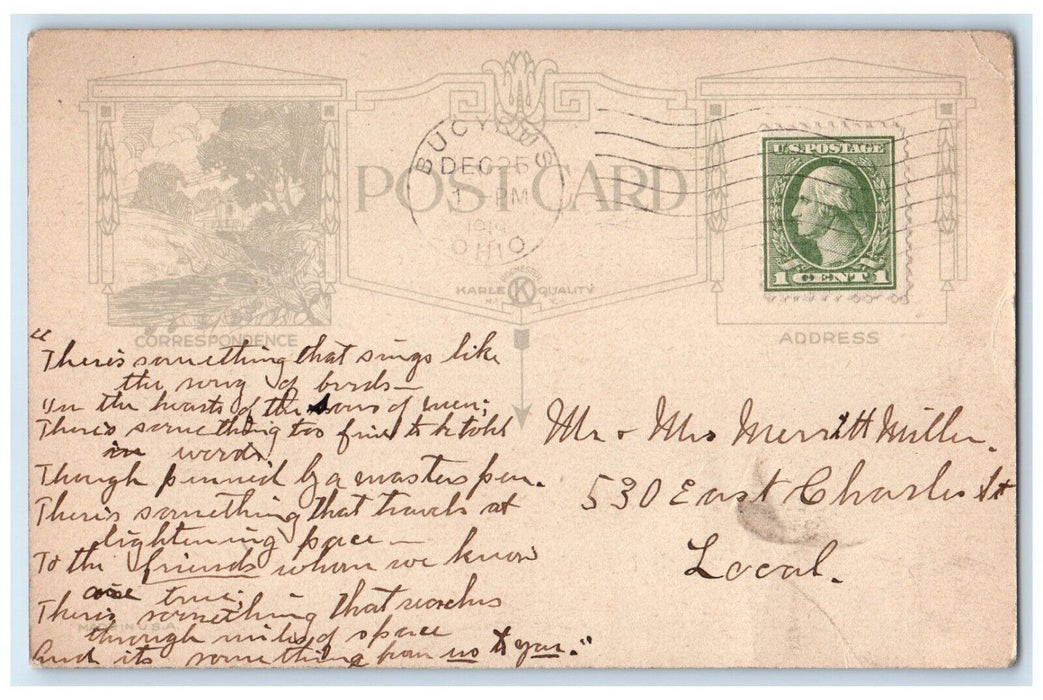 BUCYRUS
DEC 25
1 - PM
OHIO
POST CARD
U.S. POSTAGE
1 CENT 1
ROCHESTER
KARLE K QUALITY
N.Y.
CORRESPONDENCE
ADDRESS
"There's something that sings like
the song of birds—
"In the hearts of the sons of men;
There's something too fine to be told
in words
Though penned by a masters pen.
There's something that travels at
lightening pace—
To the friends whom we know
are true;
There's something that reaches
through miles of space
And its something from us to you."
Mr + Mrs Merritt Miller.
530 East Charles St
Local.
MADE IN U.S.A.